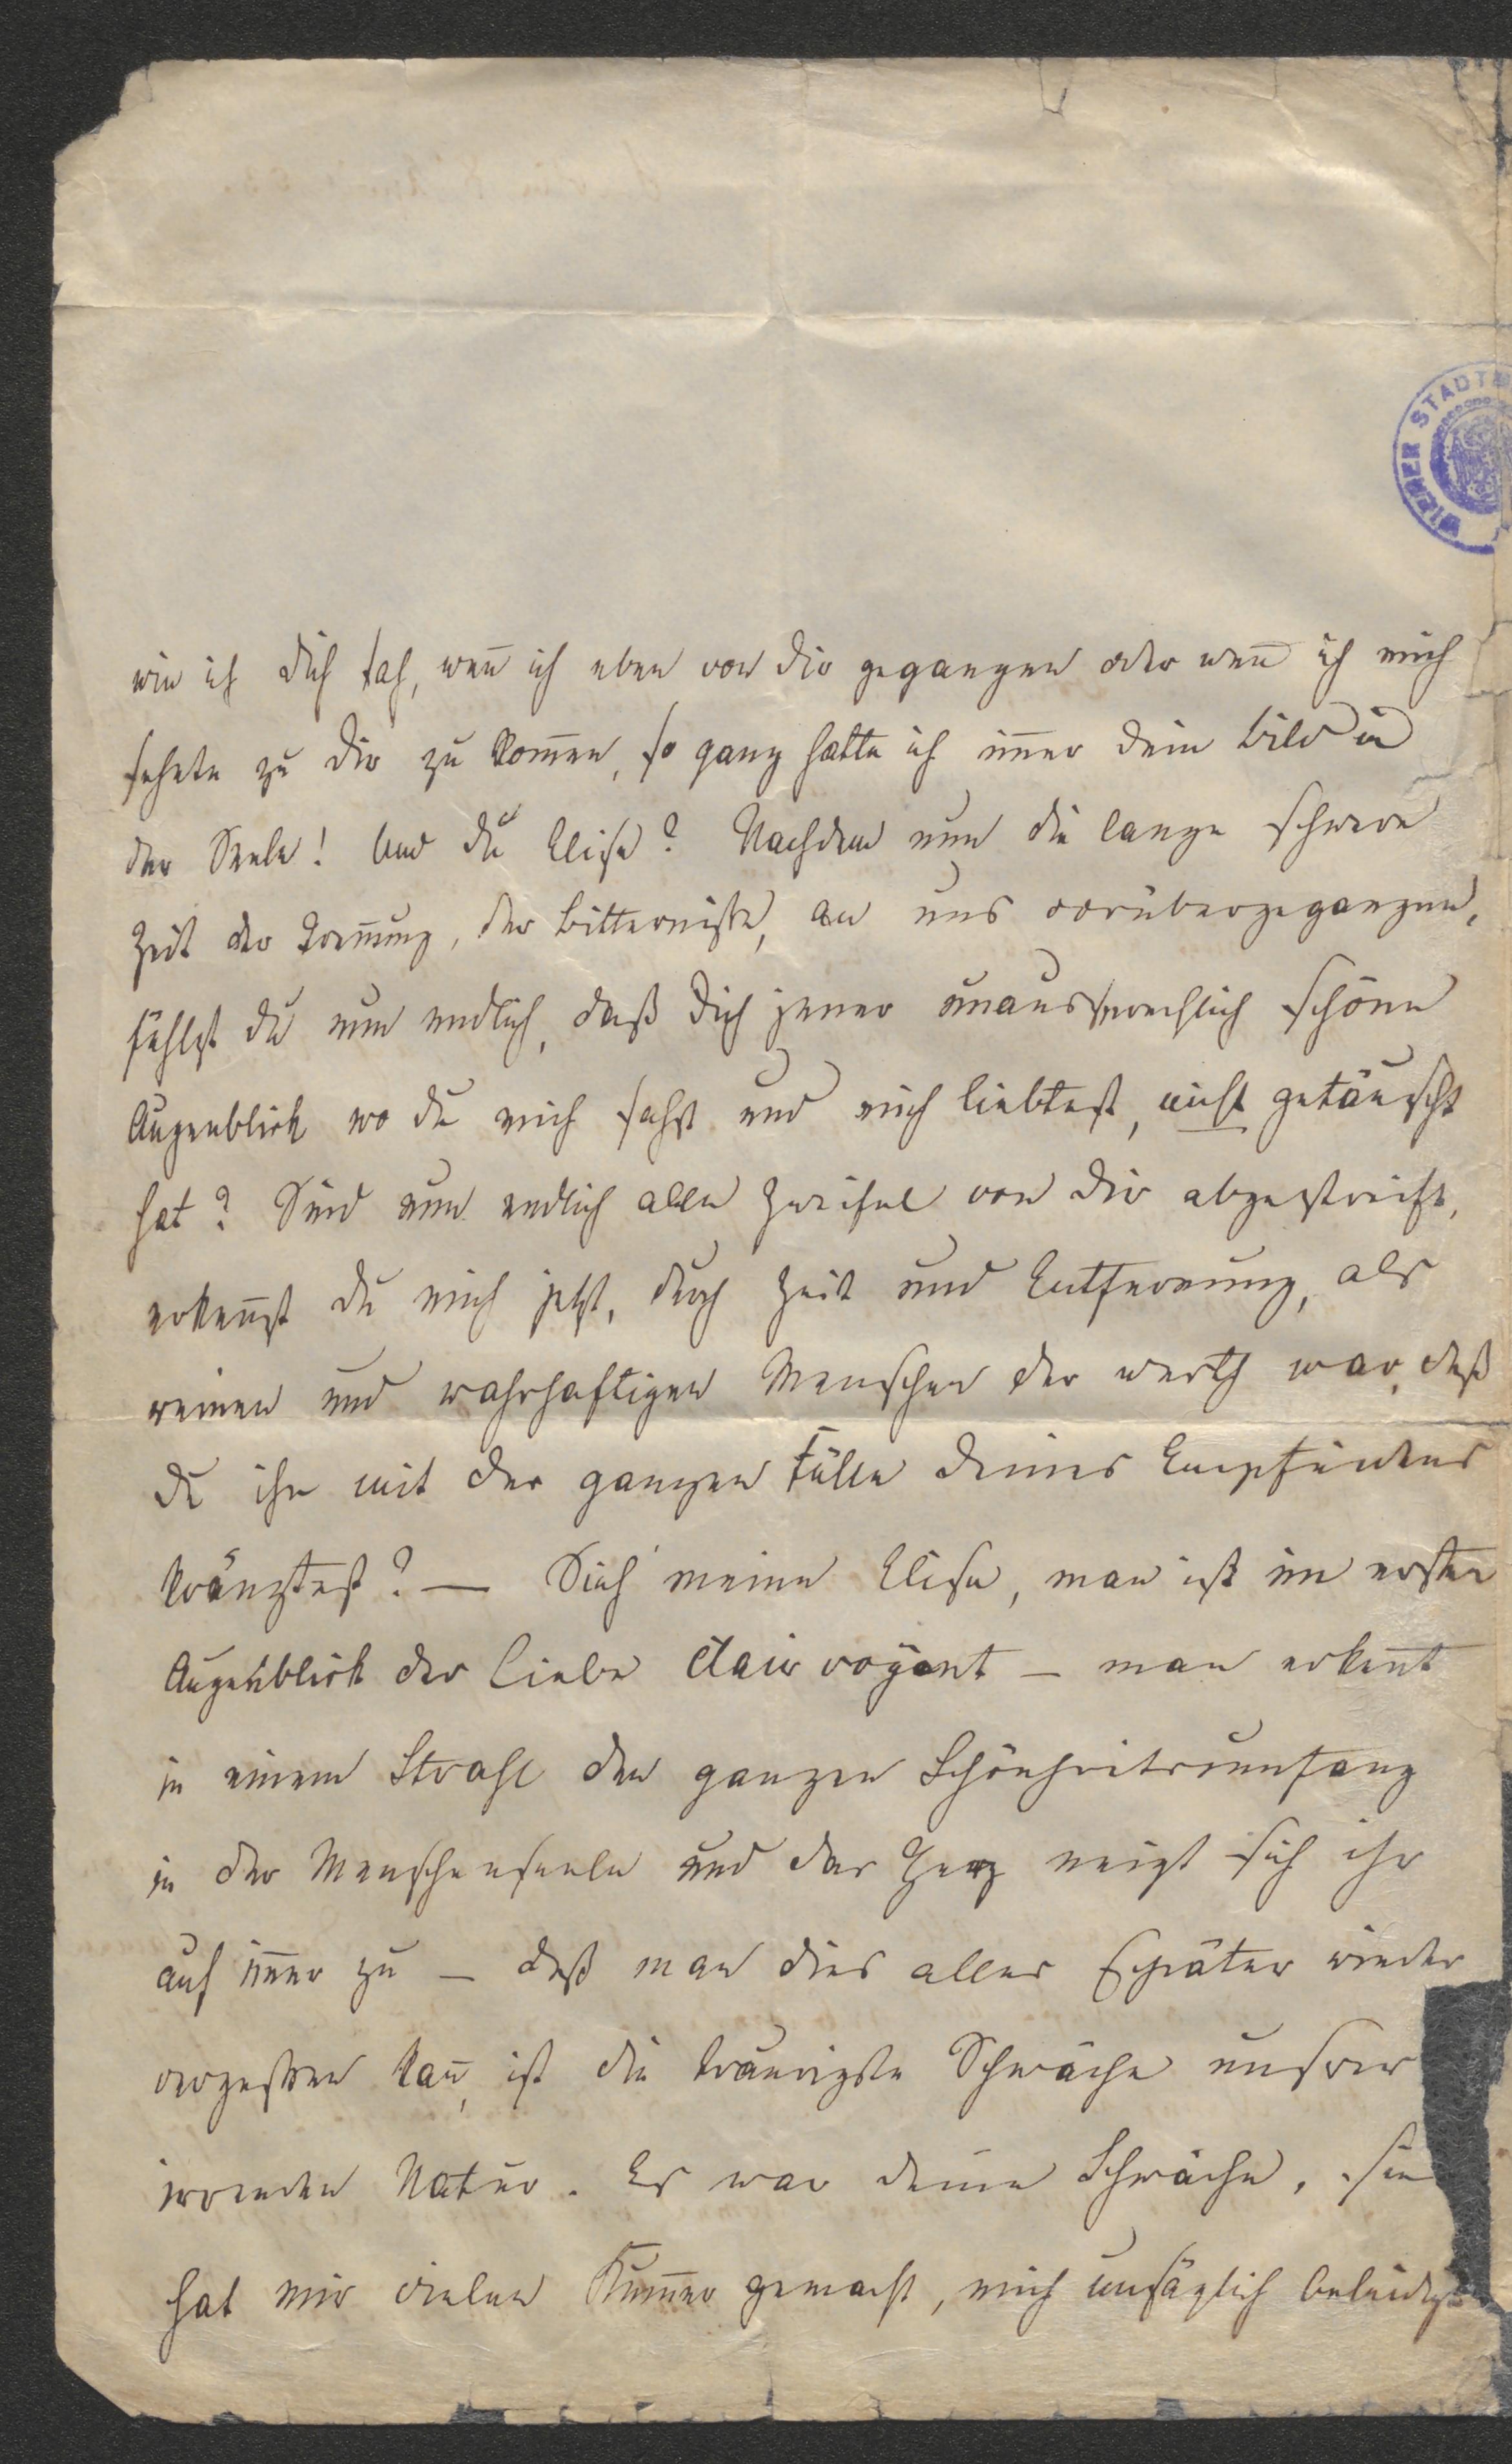 WIENER STADT
wie ich dich sah, wen̄ ich eben von dir gegangen oder wen̄ ich mich
sehnte zu dir zu kom̄en, so ganz hatte ich im̄er dein Bild in
der Seele! Und du Elise? Nachdem nun die lange schwere
Zeit der Tren̄ung, der Bitternisse, an uns vorübergegangen,
fühlst du nun endlich, daß dich jener unaussprechlich schöne
Augenblick wo du mich sahst und mich liebtest, nicht getäuscht
hat? Sind nun endlich alle Zweifel von dir abgestreift,
erken̄st du mich jetzt, durch Zeit und Entfernung, als
reinen und wahrhaftigen Menschen der werth war, daß
du ihn mit der ganzen Fülle deines Empfindens
kränztest? — Sieh' meine Elise, man ist im ersten
Augenblick der Liebe clairvoyant – man erken̄t
in einem Strahl den ganzen Schönheitsumfang
in der Menschenseele und das Herz neigt sich ihr
auf im̄er zu – daß man dies alles später wieder
vergessen kan̄, ist die traurigste Schwäche unsrer
irrenden Natur. Es war deine Schwäche, sie
hat mir vielen Kum̄er gemacht, mich unsäglich beleidigt